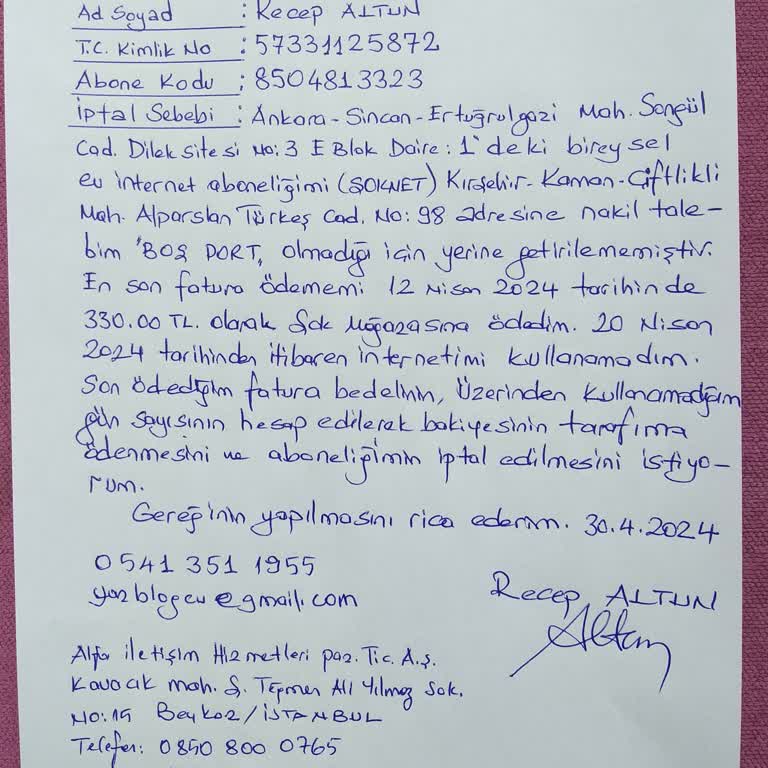 Ad Soyad : Recep ALTUN
T.C. Kimlik No : 57331125872
Abone Kodu : 8504813323
İptal Sebebi : Ankara-Sincan-Ertuğrulgazi Mah. Songül
Cad. Dilek sitesi No:3 E Blok Daire: 1'deki bireysel
ev internet aboneliğimi (ŞOKNET) Kırşehir-Kaman-Çiftlikli
Mah. Alparslan Türkeş Cad. No:98 adresine nakil tale-
bim 'BOŞ PORT, olmadığı için yerine getirilememiştir.
En son fatura ödememi 12 Nisan 2024 tarihinde
330.00 TL. olarak Şok Mağazasına ödedim. 20 Nisan
2024 tarihinden itibaren internetimi kullanamadım.
Son ödediğim fatura bedelinin, üzerinden kullanamadığım
gün sayısının hesap edilerek bakiyesinin tarafıma
ödenmesini ve aboneliğimin iptal edilmesini istiyo-
rum.
Gereğinin yapılmasını rica ederim. 30.4.2024
0541 351 1955
yazblogcu@gmail.com
Recep ALTUN
Altun
Alfa iletişim Hizmetleri paz. Tic. A.Ş.
Kavacık mah. Ş. Teğmen Ali Yılmaz Sok.
No:15 Beykoz/İSTANBUL
Telefon: 0850 800 0765